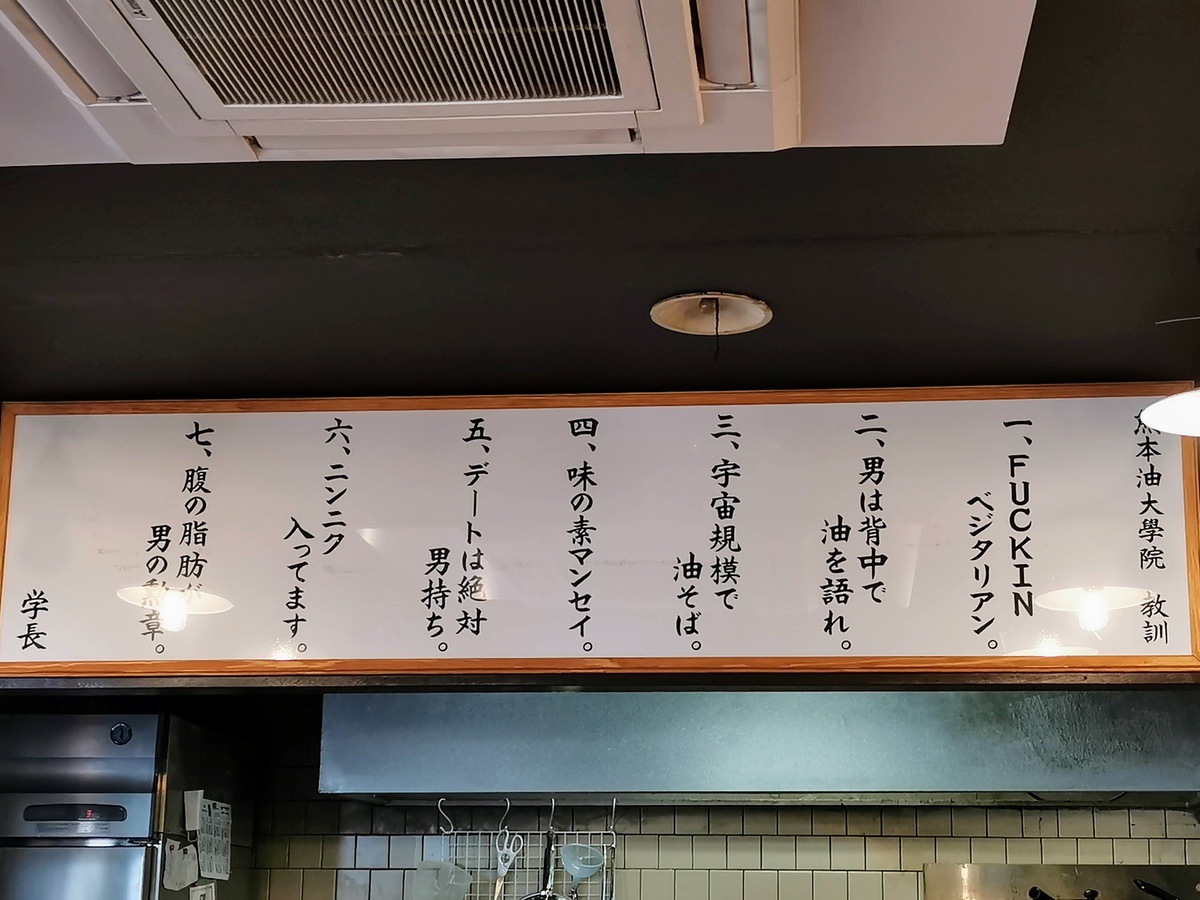 熊本油大學院 教訓
一、FUCKIN
ベジタリアン。
二、男は背中で
油を語れ。
三、宇宙規模で
油そば。
四、味の素マンセイ。
五、デートは絶対
男持ち。
六、ニンニク
入ってます。
七、腹の脂肪が
男の勲章。
学長